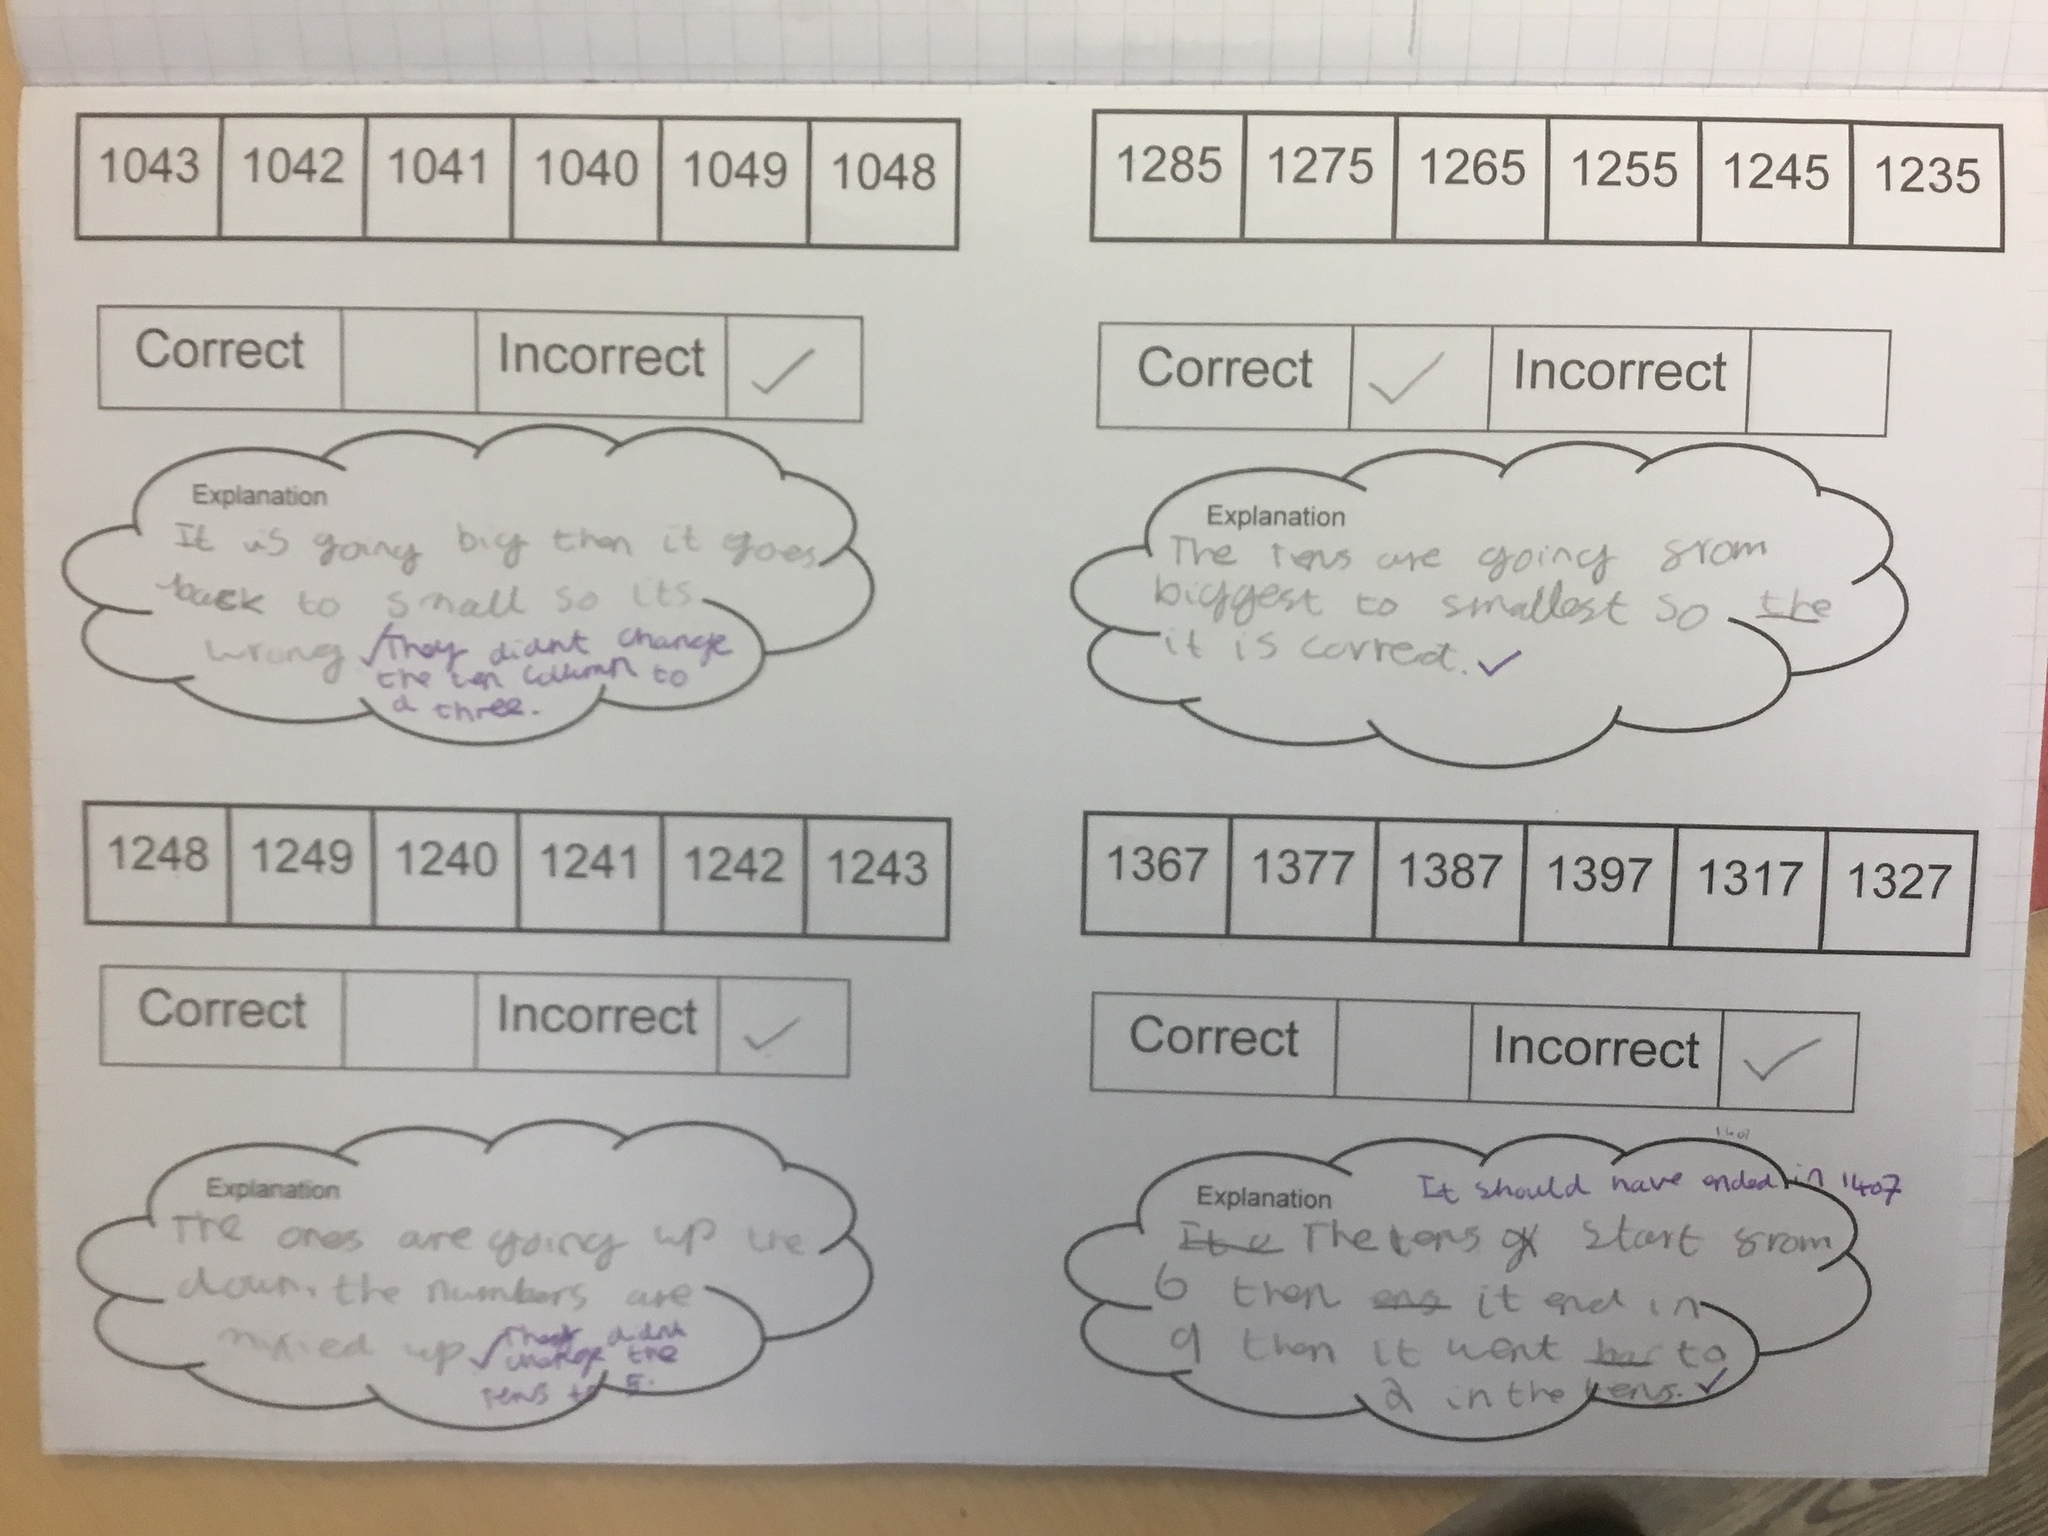 1043 1042 1041 1040 1049 1048
Correct Incorrect ✓
Explanation
It is going big then it goes
back to small so its
wrong ✓ They didnt change
the ten column to
a three.
1285 1275 1265 1255 1245 1235
Correct ✓ Incorrect
Explanation
The tens are going from
biggest to smallest so the
it is correct. ✓
1248 1249 1240 1241 1242 1243
Correct Incorrect ✓
Explanation
The ones are going up the
down. the numbers are
mixed up ✓ They didnt
change the
tens to 5.
1367 1377 1387 1397 1317 1327
Correct Incorrect ✓
1407
Explanation It should have ended in 1407
The tens start from
6 then it end in
9 then it went to
2 in the tens. ✓